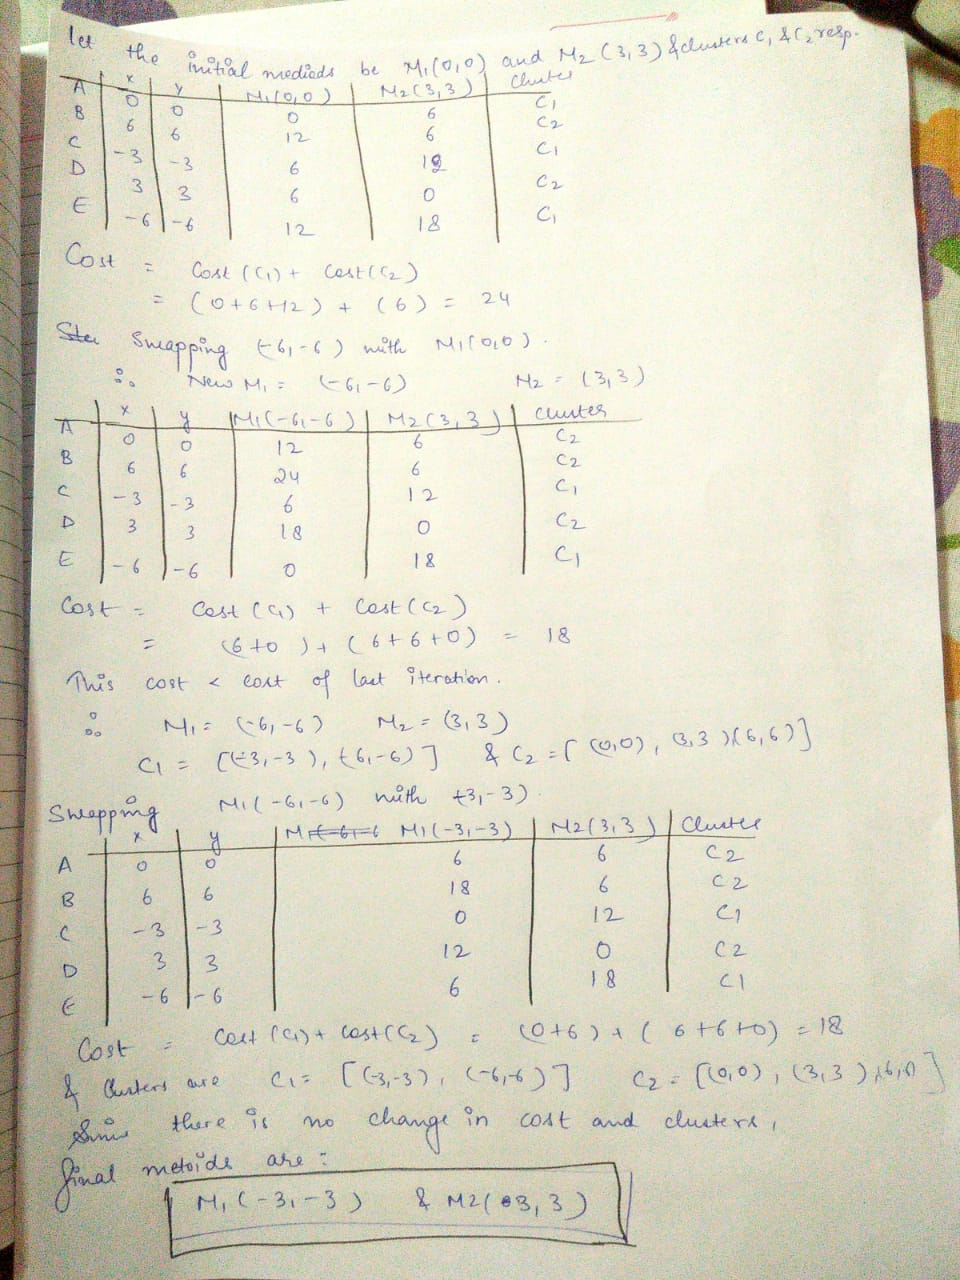 let the initial medieds be M1(0,0) and M2 (3,3) & clusters C1 & C2 resp.
x y M1(0,0) M2(3,3) Cluster
A 0 0 0 6 C1
B 6 6 12 6 C2
C -3 -3 6 12 C1
D 3 3 6 0 C2
E -6 -6 12 18 C1
Cost = Cost (C1) + Cost (C2)
= (0+6+12) + (6) = 24
Swapping (-6,-6) with M1(0,0).
∴ New M1 = (-6,-6) M2 = (3,3)
x y M1(-6,-6) M2(3,3) Cluster
A 0 0 12 6 C2
B 6 6 24 6 C2
C -3 -3 6 12 C1
D 3 3 18 0 C2
E -6 -6 0 18 C1
Cost = Cost (C1) + Cost (C2)
= (6+0) + (6+6+0) = 18
This cost < cost of last iteration.
∴ M1 = (-6,-6) M2 = (3,3)
C1 = [(-3,-3), (-6,-6)] & C2 = [(0,0), (3,3)(6,6)]
Swapping M1(-6,-6) with (-3,-3)
x y M1(-3,-3) M2(3,3) Cluster
A 0 0 6 6 C2
B 6 6 18 6 C2
C -3 -3 0 12 C1
D 3 3 12 0 C2
E -6 -6 6 18 C1
Cost = Cost (C1) + Cost (C2) = (0+6) + (6+6+0) = 18
& Clusters are C1 = [(-3,-3), (-6,-6)] C2 = [(0,0), (3,3),
Since there is no change in cost and clusters,
final metoids are :
M1 (-3,-3) & M2(3,3)